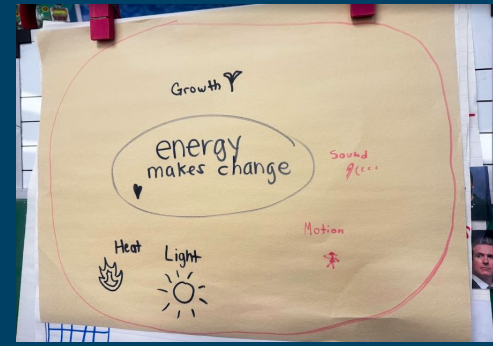 Growth
energy
makes change
Sound
Motion
Heat
Light